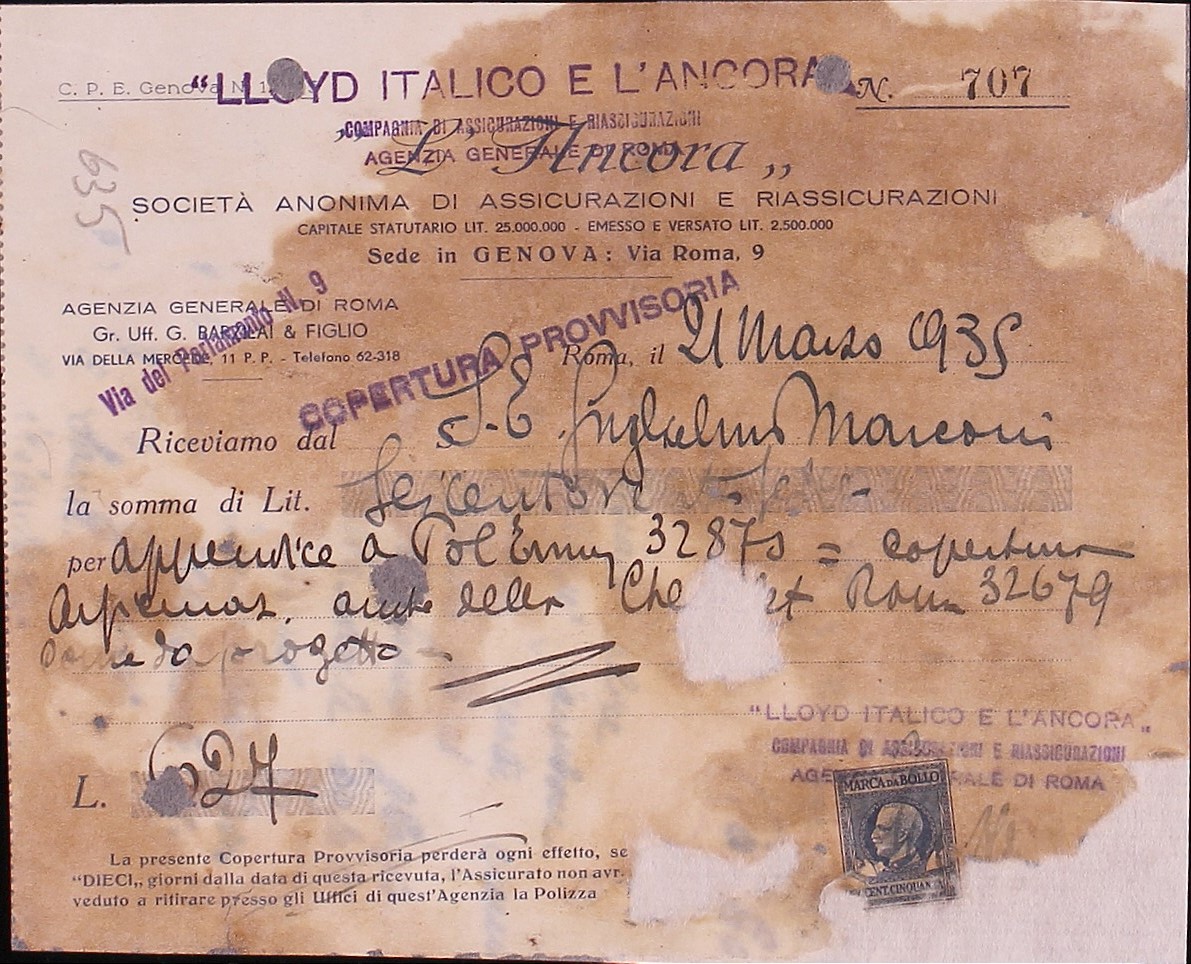 C. P. E. Genova N. 1
"LLOYD ITALICO E L'ANCORA
N. 707
COMPAGNIA DI ASSICURAZIONI E RIASSICURAZIONI
AGENZIA GENERALE DI ROMA
"L'Ancora„
635
SOCIETÀ ANONIMA DI ASSICURAZIONI E RIASSICURAZIONI
CAPITALE STATUTARIO LIT. 25.000.000 - EMESSO E VERSATO LIT. 2.500.000
Sede in GENOVA: Via Roma, 9
AGENZIA GENERALE DI ROMA
Gr. Uff. G. BARTOLAI & FIGLIO
VIA DELLA MERCEDE, 11 P. P. - Telefono 62-318
Via del Parlamento N. 9
COPERTURA PROVVISORIA
Roma, il 21 Marzo 1935
Riceviamo dal S. E. Guglielmo Marconi
la somma di Lit.
per appendice a Pol 32873 = copertura
della Che Roma 32679
come da progetto -
L. 627
"LLOYD ITALICO E L'ANCORA„
COMPAGNIA DI ASSICURAZIONI E RIASSICURAZIONI
AGE RALE DI ROMA
MARCA DA BOLLO
CENT. CINQUAN
La presente Copertura Provvisoria perderà ogni effetto, se
"DIECI„ giorni dalla data di questa ricevuta, l'Assicurato non avr
veduto a ritirare presso gli Uffici di quest'Agenzia la Polizza